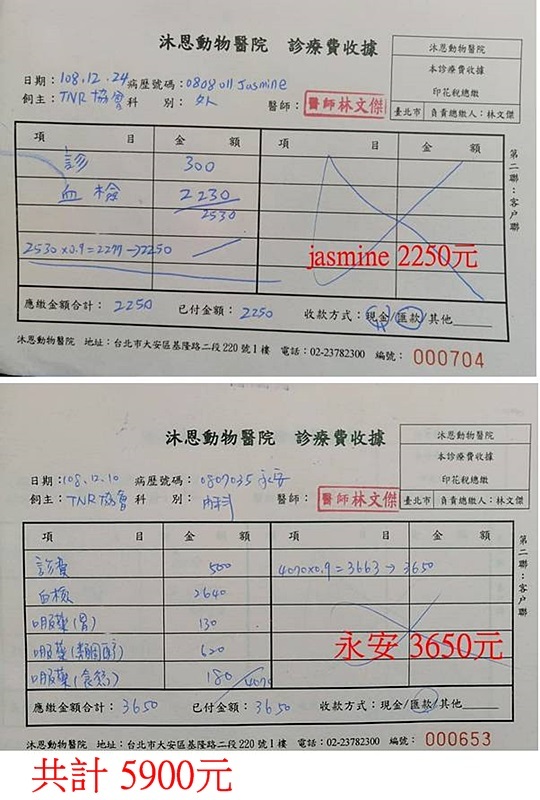 沐恩動物醫院 診療費收據
沐恩動物醫院
本診療費收據
印花稅總繳
臺北市 負責總繳人：林文傑
日期：108.12.24 病歷號碼：0808011 Jasmine
飼主：TNR協會 科 別：外 醫師：醫師林文傑
項 目 金 額 項 目 金 額
診 300
血檢 2230
2530
2530x0.9=2277→2250
jasmine 2250元
應繳金額合計：2250 已付金額：2250 收款方式：現金/匯款/其他
沐恩動物醫院 地址：台北市大安區基隆路二段220號1樓 電話：02-23782300 編號：000704
第二聯：客戶聯
沐恩動物醫院 診療費收據
沐恩動物醫院
本診療費收據
印花稅總繳
臺北市 負責總繳人：林文傑
日期：108.12.10 病歷號碼：0807035 永安
飼主：TNR協會 科 別：內科 醫師：醫師林文傑
項 目 金 額 項 目 金 額
診費 500 4070x0.9=3663→3650
血檢 2640
口服藥(胃) 130
口服藥(類固醇) 620
口服藥 180 4070
永安 3650元
應繳金額合計：3650 已付金額：3650 收款方式：現金/匯款/其他
沐恩動物醫院 地址：台北市大安區基隆路二段220號1樓 電話：02-23782300 編號：000653
第二聯：客戶聯
共計 5900元